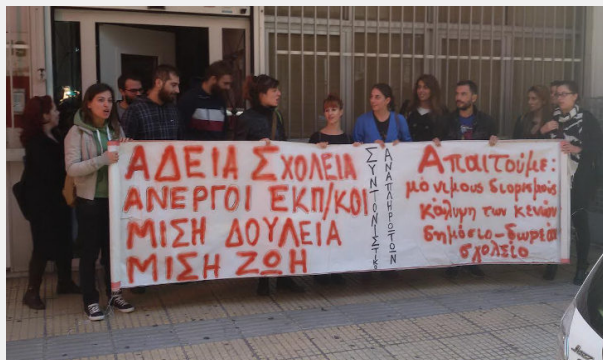 ΑΔΕΙΑ ΣΧΟΛΕΙΑ
ΑΝΕΡΓΟΙ ΕΚΠ/ΚΟΙ
ΜΙΣΗ ΔΟΥΛΕΙΑ
ΜΙΣΗ ΖΩΗ
ΣΥΝΤΟΝΙΣΤΙΚΟ
ΑΝΑΠΛΗΡΩΤΩΝ
Απαιτούμε:
μόνιμους διορισμούς
κάλυψη των κενών
δημόσιο-δωρεάν
σχολείο